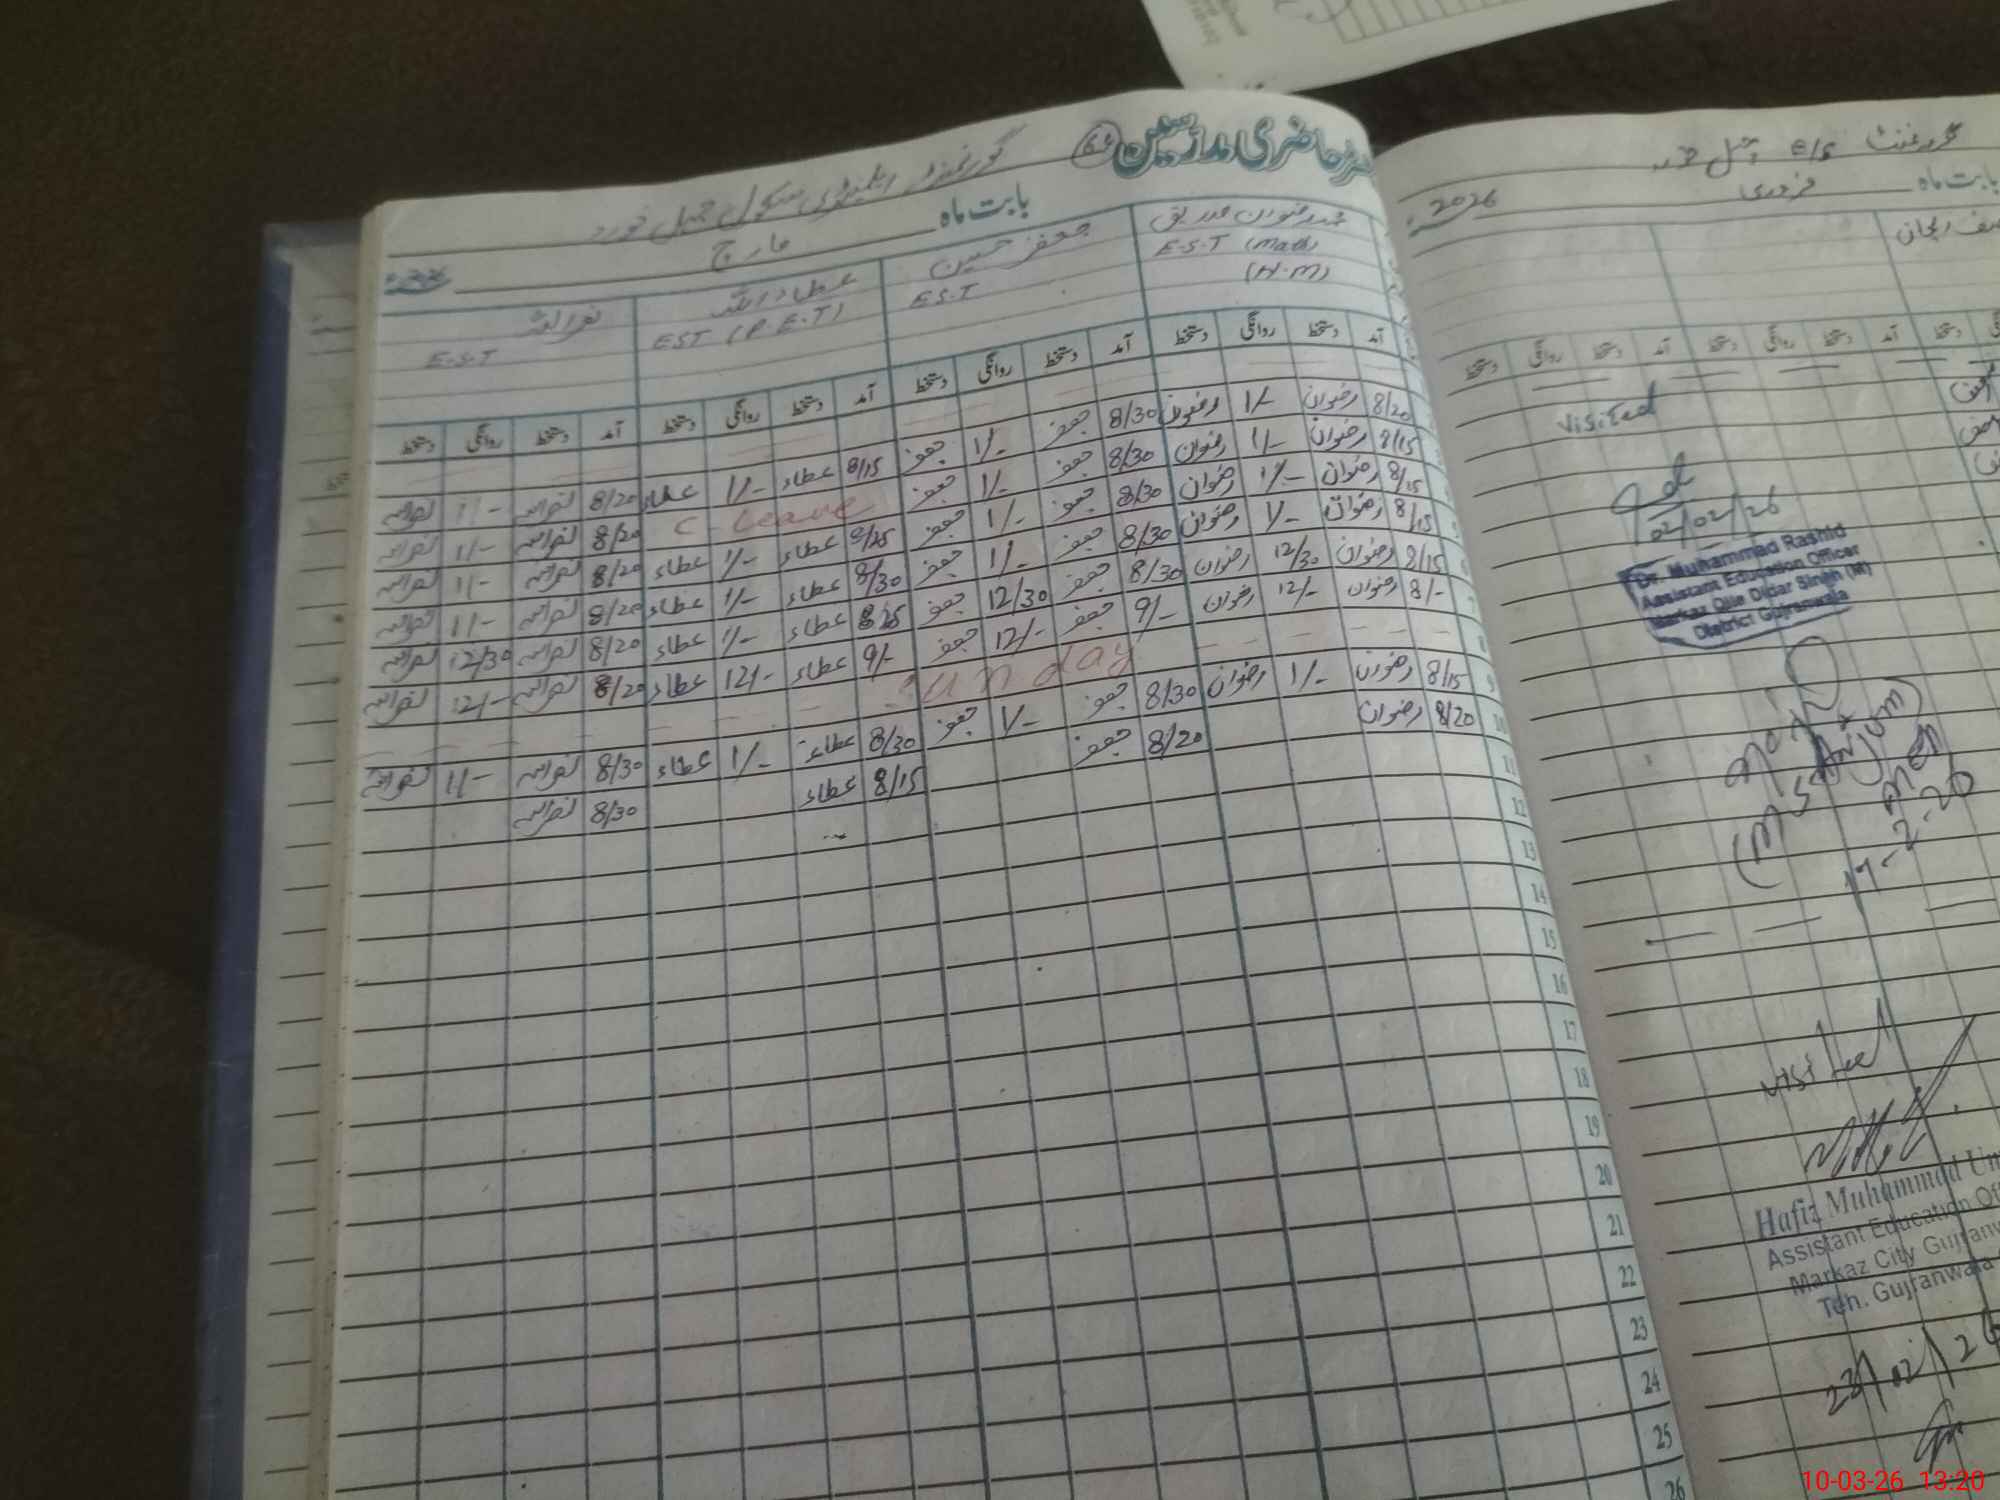 رجسٹر حاضری مدرسین
گورنمنٹ ایلیمنٹری سکول جمیل خورد
بابت ماہ مارچ 2026
محمد رضوان صدیق
E.S.T (Math)
(H.M)
جعفر حسین
E.S.T
عطاء اللہ
EST (P.E.T)
نصر اللہ
E.S.T
آمد دستخط روانگی دستخط آمد دستخط روانگی دستخط آمد دستخط روانگی دستخط آمد دستخط روانگی دستخط
8/20 رضوان 1/- رضوان 8/30 جعفر 1/- جعفر 8/15 عطاء 1/- عطاء 8/20 نصراللہ 1/- نصراللہ
8/15 رضوان 1/- رضوان 8/30 جعفر 1/- جعفر C-Leave 8/20 نصراللہ 1/- نصراللہ
8/15 رضوان 1/- رضوان 8/30 جعفر 1/- جعفر عطاء 1/- عطاء 8/20 نصراللہ 1/- نصراللہ
8/15 رضوان 1/- رضوان 8/30 جعفر 1/- جعفر 8/30 عطاء 1/- عطاء 8/20 نصراللہ 1/- نصراللہ
8/15 رضوان 12/30 رضوان 8/30 جعفر 12/30 جعفر عطاء 1/- عطاء 8/20 نصراللہ 12/30 نصراللہ
8/- رضوان 12/- رضوان 9/- جعفر 12/- جعفر 9/- عطاء 12/- عطاء 8/20 نصراللہ 12/- نصراللہ
Sunday
8/15 رضوان 1/- رضوان 8/30 جعفر 1/- جعفر 8/30 عطاء 1/- عطاء 8/30 نصراللہ 1/- نصراللہ
8/20 رضوان 8/20 جعفر 8/15 عطاء 8/30 نصراللہ
9
10
11
12
13
14
15
16
17
18
19
20
21
22
23
24
25
26
گورنمنٹ e/s جمیل خورد
بابت ماہ فروری 2026
آمد دستخط روانگی دستخط
Visited
02/02/26
Dr. Muhammad Rashid
Assistant Education Officer
Markaz Qila Didar Singh (M)
District Gujranwala
17-2-20
visited
Hafiz Muhammad Um
Assistant Education Off
Markaz City Gujranw
Teh. Gujranwala
23/02/26
10-03-26 13:20